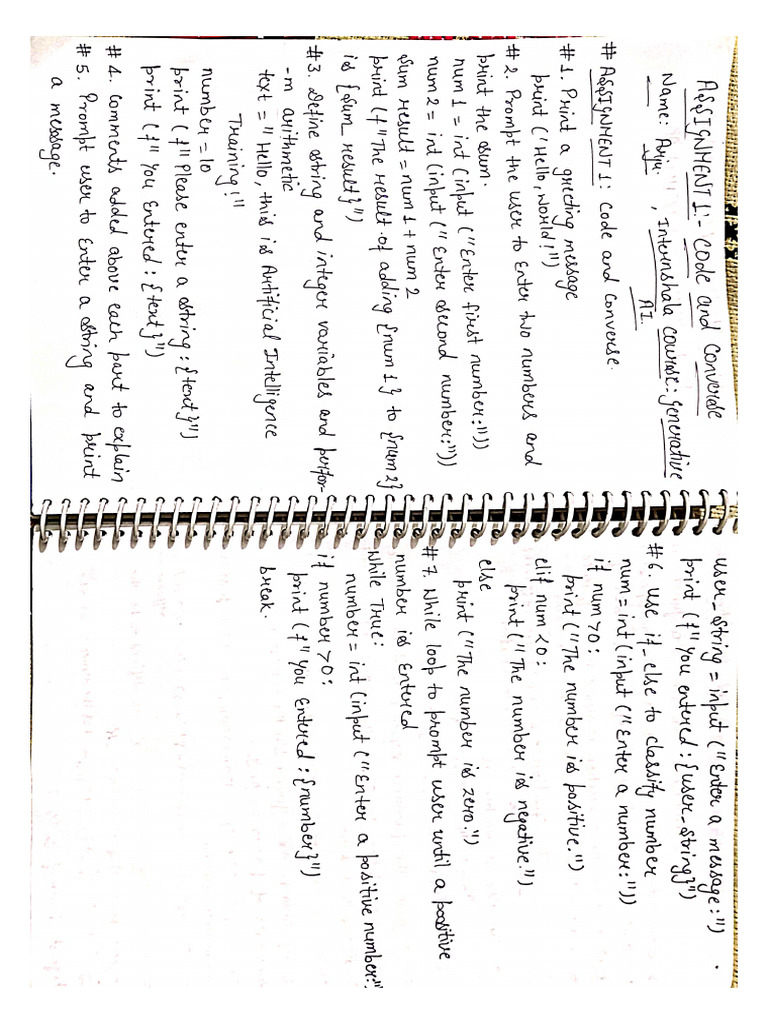 ASSIGNMENT 1:- Code and Converse
Name: Anju , Internshala course: generative
AI.
# ASSIGNMENT 1: Code and Converse.
#1. Print a greeting message
print ('Hello, World!")
#2. Prompt the user to Enter two numbers and
print the sum.
num 1 = int (input ("Enter first number:"))
num 2 = int (input ("Enter second number:"))
sum result = num 1 + num 2
print (f"The result of adding {num 1} to {num 2}
is {sum_result}")
#3. Define string and integer variables and perfor-
-m arithmetic
text = "Hello, this is Artificial Intelligence
Training!"
number = 10
print (f"Please enter a string: {text}")
print (f"You Entered: {text}")
#4. Comments added above each part to explain
#5. Prompt user to Enter a string and print
a message.
user_string = input ("Enter a message:")
print (f"You entered: {user_string}")
#6. Use if_else to classify number
num = int (input ("Enter a number:"))
if num > 0:
print ("The number is positive.")
elif num < 0:
print ("The number is negative.")
else
print ("The number is zero.")
#7. While loop to prompt user until a positive
number is Entered
While True:
number = int (input ("Enter a positive number:"
if number > 0:
print (f"You Entered: {number}")
break.